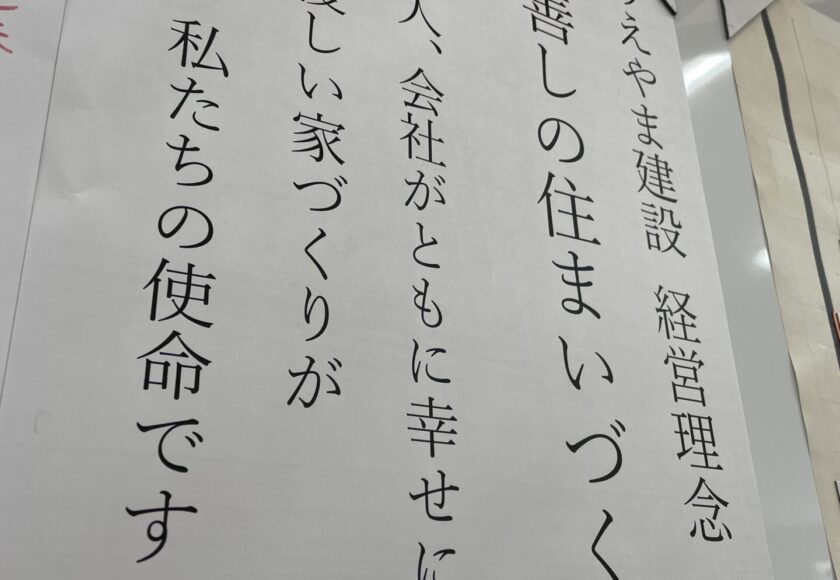 えやま建設 経営理念
善しの住まいづく
人、会社がともに幸せに
しい家づくりが
私たちの使命です